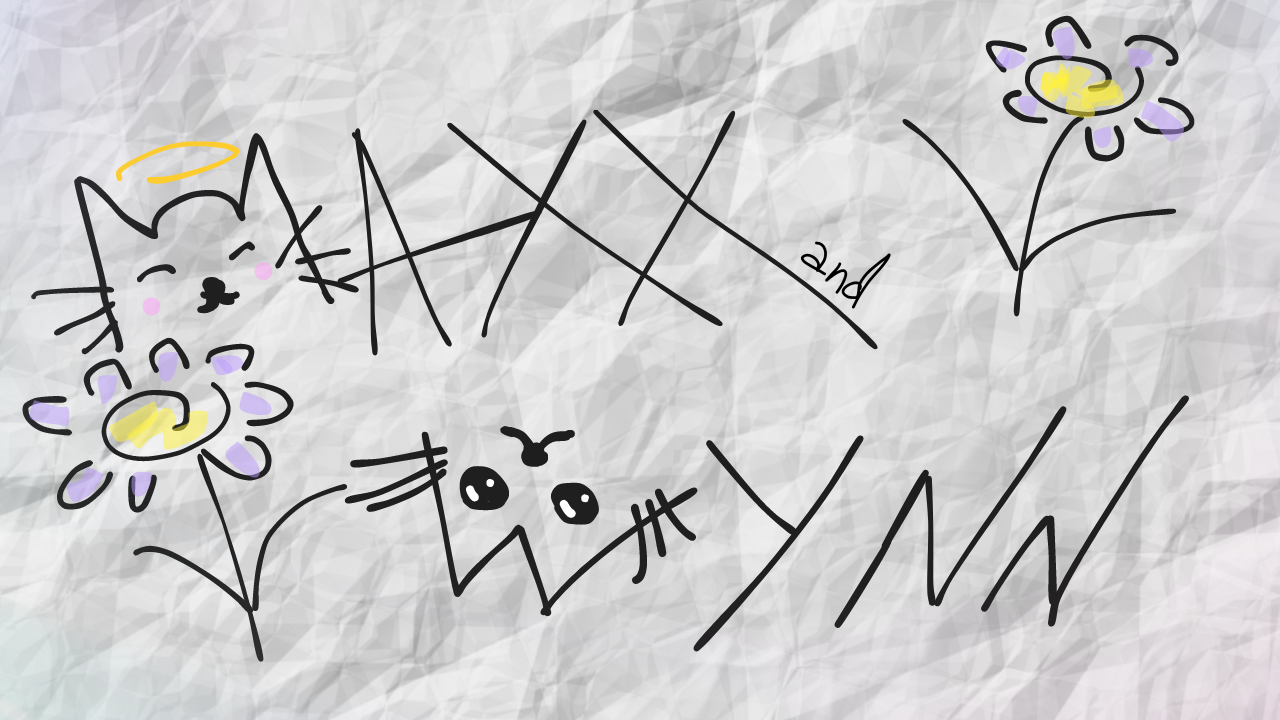 MAXX and
WYNN